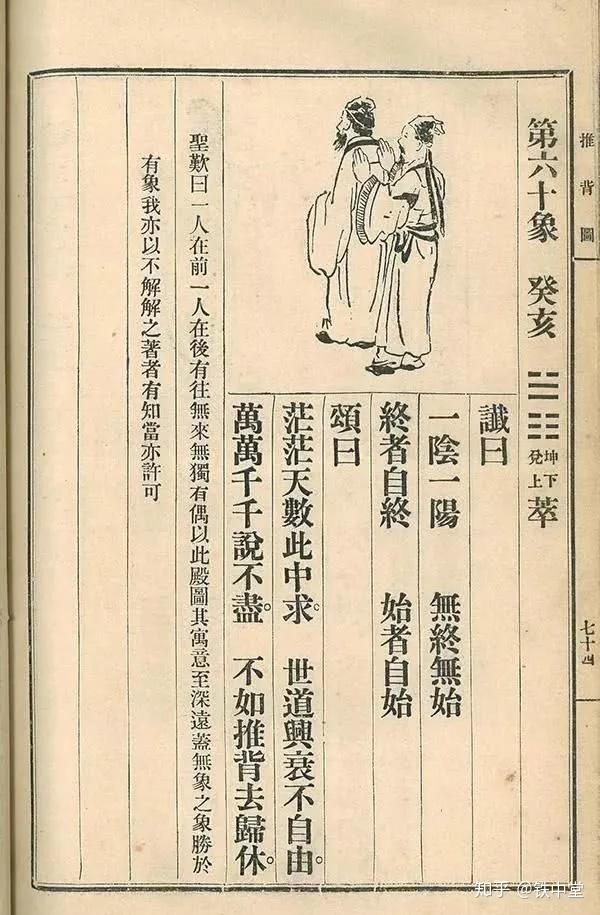 推背圖
七十四
第六十象 癸亥 ䷬ 坤下兌上 萃
讖曰
一陰一陽 無終無始
終者自終 始者自始
頌曰
茫茫天數此中求。 世道興衰不自由。
萬萬千千說不盡。 不如推背去歸休。
聖歎曰一人在前一人在後有往無來無獨有偶以此殿圖其寓意至深遠蓋無象之象勝於
有象我亦以不解解之著者有知當亦許可
知乎 @铁中堂